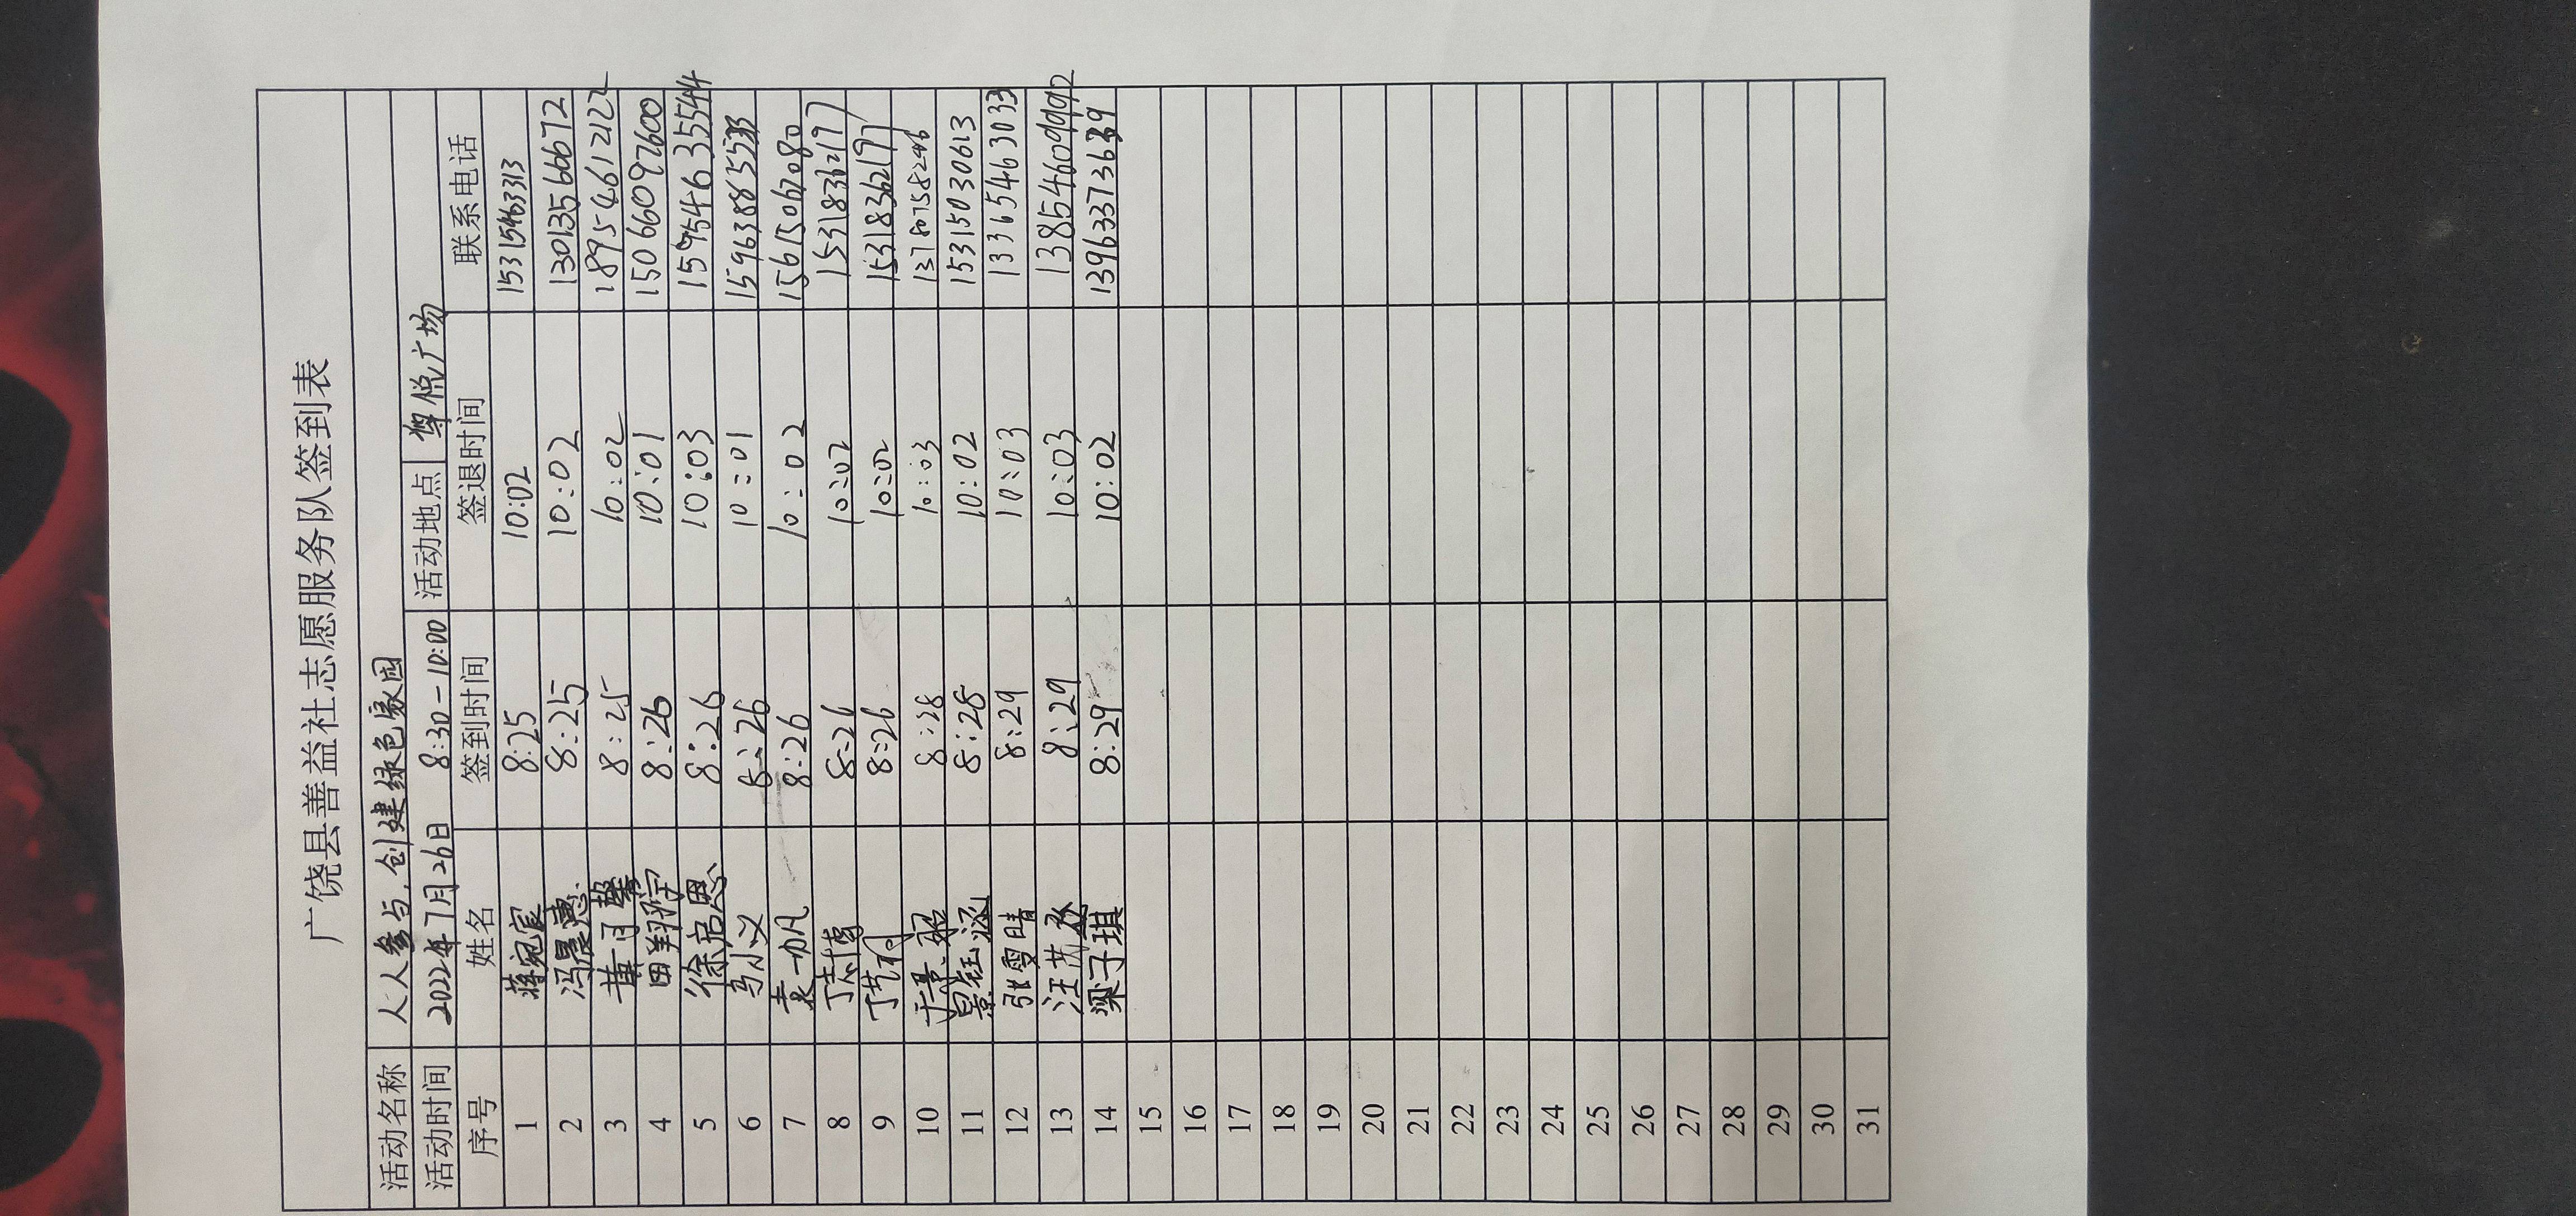 广饶县善益社志愿服务队签到表
活动名称 人人参与,创建绿色家园
活动时间 2022年7月26日 8:30-10:00 活动地点 尊悦广场
序号 姓名 签到时间 签退时间 联系电话
1 蒋宛宸 8:25 10:02 15315963313
2 冯晨惠 8:25 10:02 13013566672
3 黄可馨 8:25 10:02 18954612122
4 田翔宁 8:26 10:01 15066097600
5 徐启恩 8:26 10:03 15954635544
6 马小义 8:26 10:01 15963885533
7 袁一帆 8:26 10:02 15615067080
8 丁志博 8:26 10:02 15318362197
9 丁艺 8:26 10:02 15318362197
10 于景昭 8:28 10:03 13780758246
11 景钰涵 8:28 10:02 15315030613
12 张雪晴 8:29 10:03 13365463033
13 汪 8:29 10:03 13854609992
14 梁子琪 8:29 10:02 13963373639
15
16
17
18
19
20
21
22
23
24
25
26
27
28
29
30
31